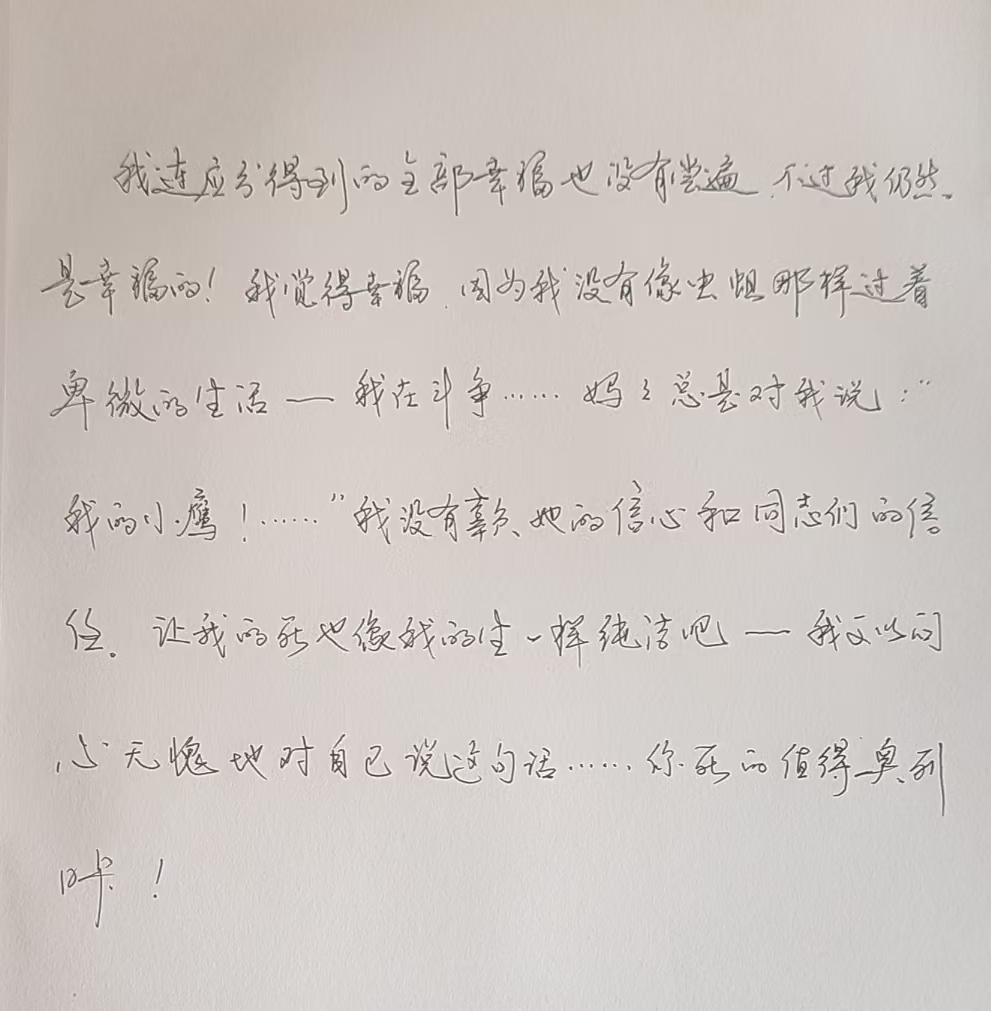 我连应分得到的全部幸福也没有尝遍,不过我仍然
是幸福的!我觉得幸福,因为我没有像虫蛆那样过着
卑微的生活——我在斗争……妈々总是对我说:“
我的小鹰!……”我没有辜负她的信心和同志们的信
任。让我的死也像我的生一样纯洁吧——我可以问
心无愧地对自己说这句话……你死的值得,奥列
咔!